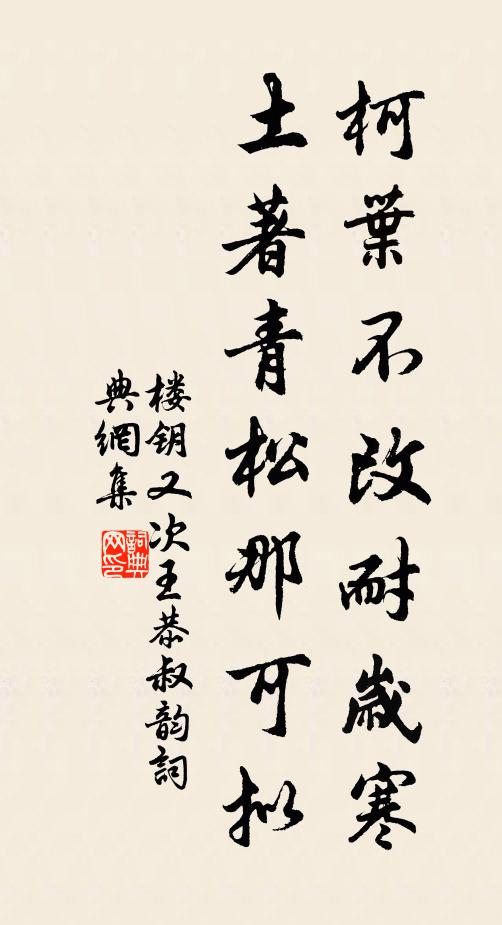 柯葉不改耐歲寒
土著青松那可拟
楼钥又次王恭叔韵詞
典網集
詞典网印